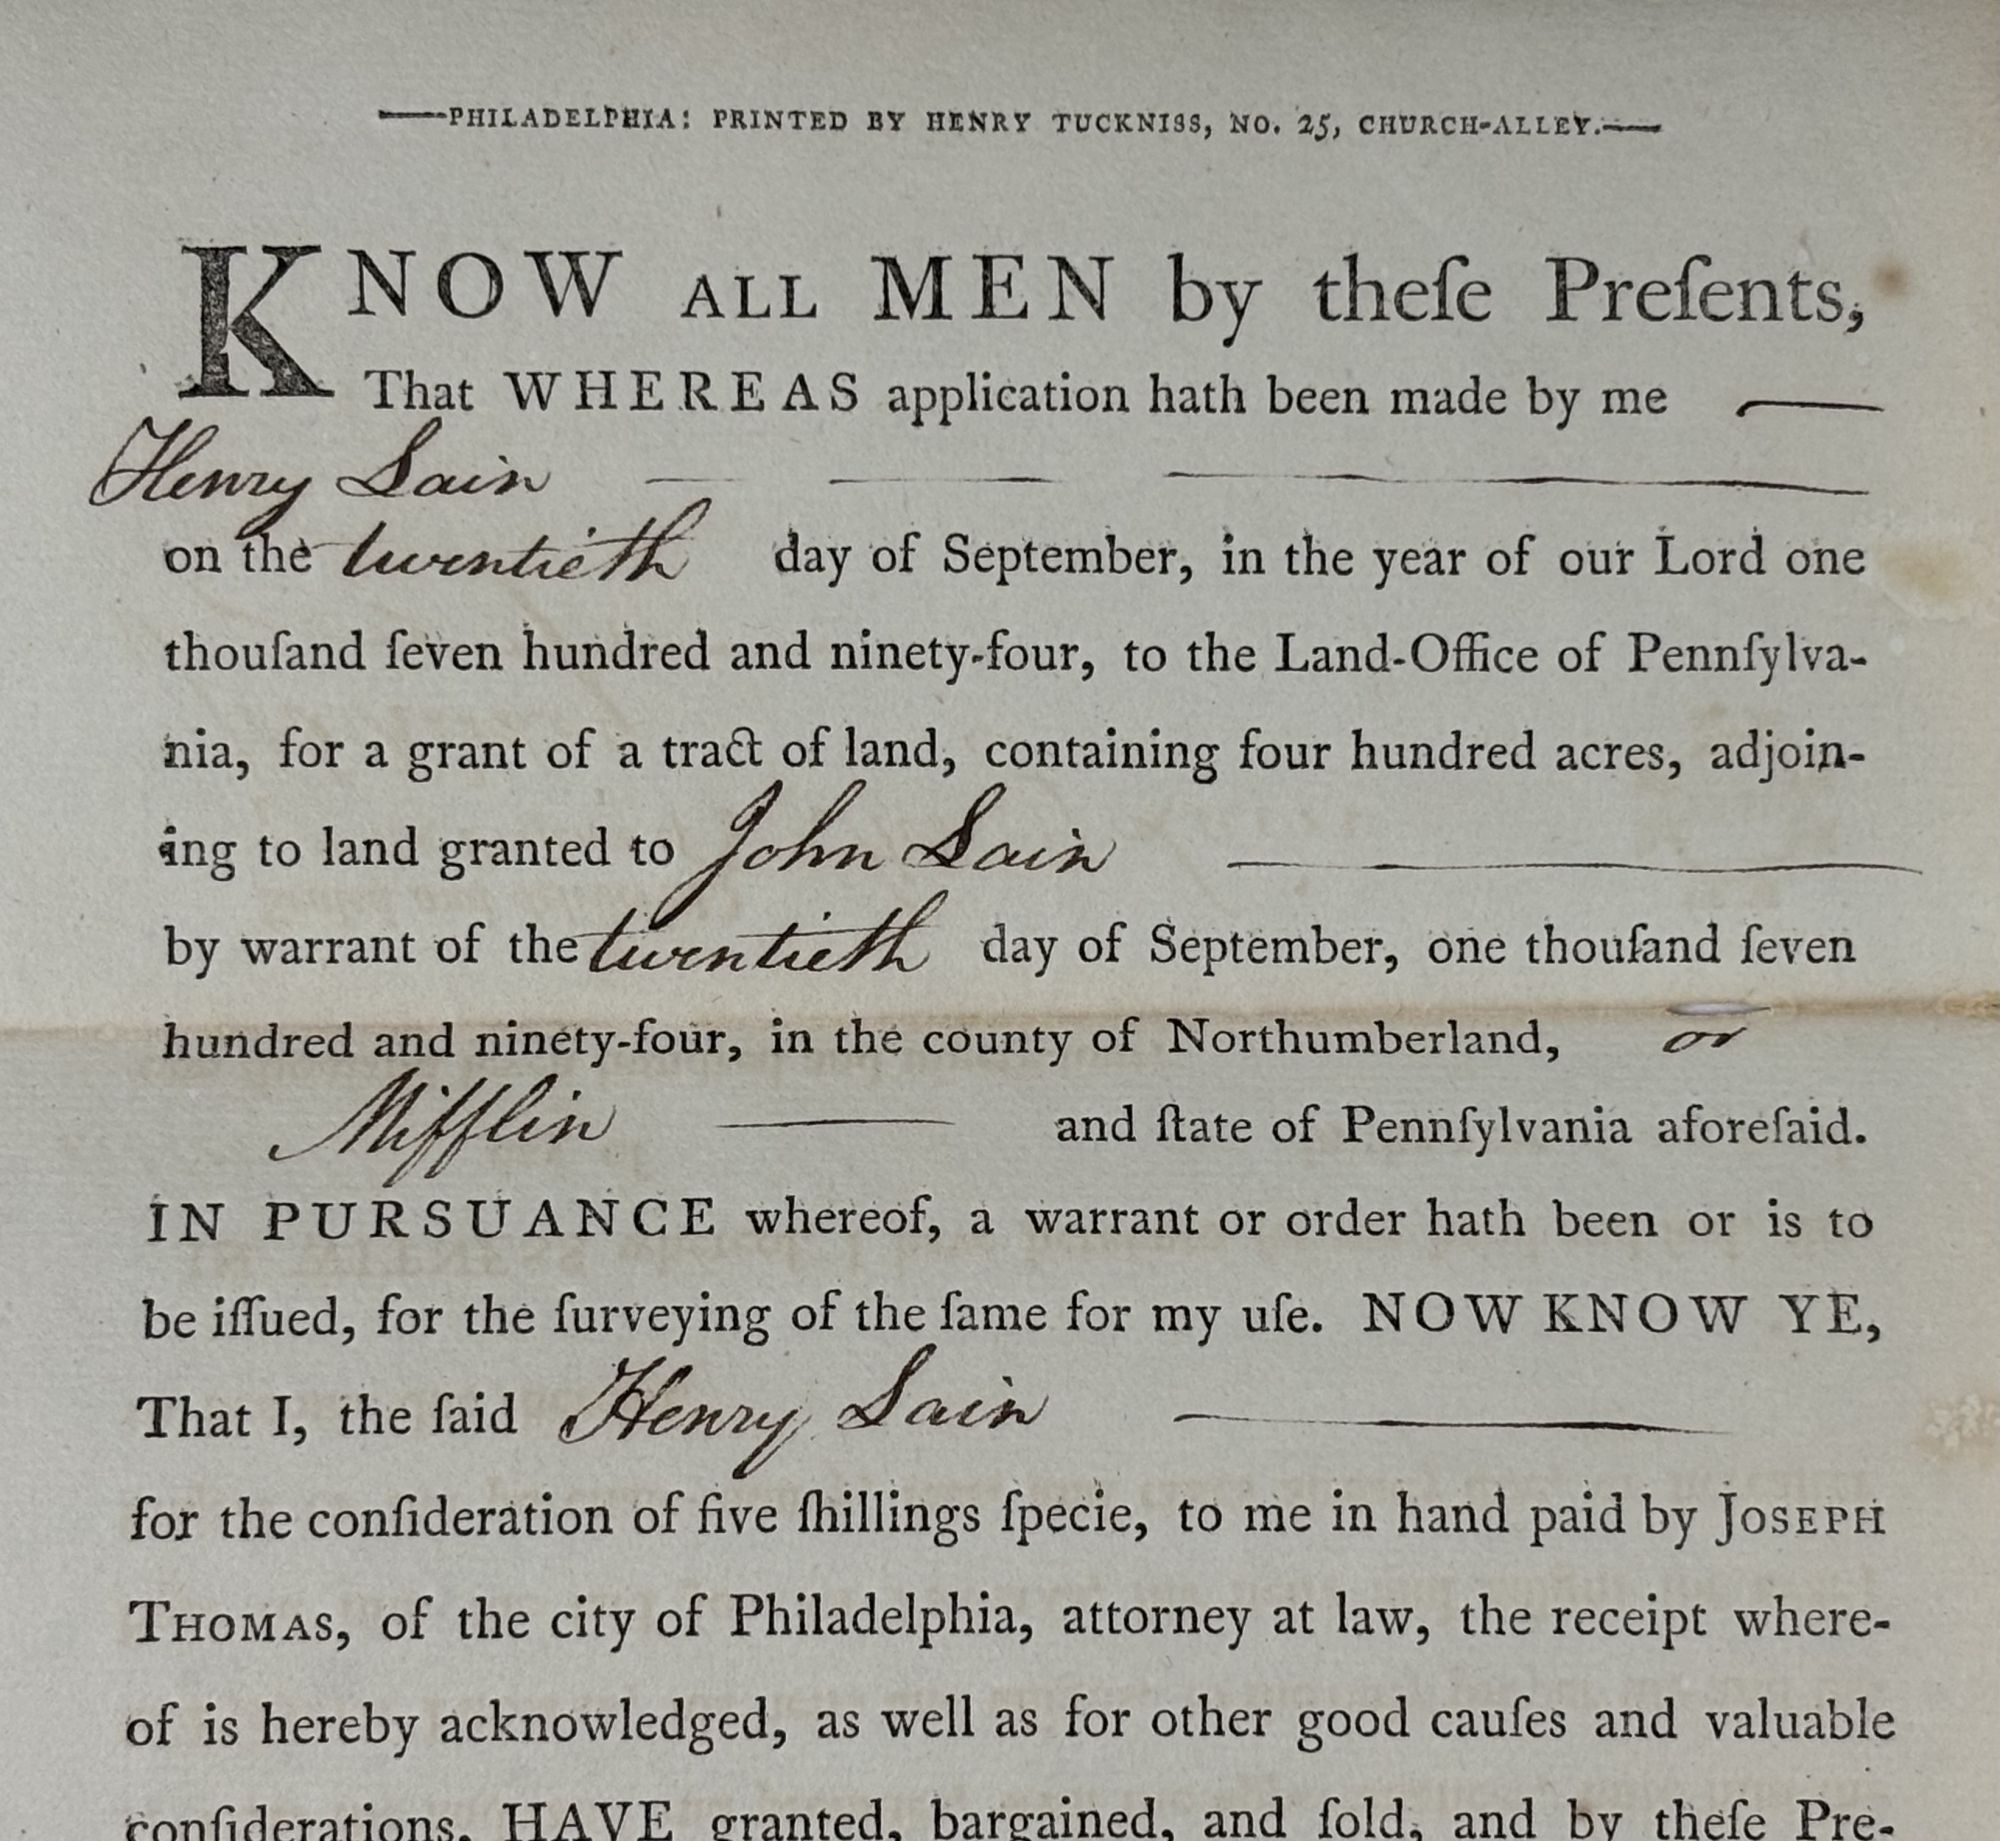 ——PHILADELPHIA: PRINTED BY HENRY TUCKNISS, NO. 25, CHURCH-ALLEY.——
KNOW ALL MEN by theſe Preſents,
That WHEREAS application hath been made by me —
Henry Sain — — —
on the twentieth day of September, in the year of our Lord one
thouſand ſeven hundred and ninety-four, to the Land-Office of Pennſylva-
nia, for a grant of a tract of land, containing four hundred acres, adjoin-
ing to land granted to John Sain —
by warrant of the twentieth day of September, one thouſand ſeven
hundred and ninety-four, in the county of Northumberland, or
Mifflin — and ſtate of Pennſylvania aforeſaid.
IN PURSUANCE whereof, a warrant or order hath been or is to
be iſſued, for the ſurveying of the ſame for my uſe. NOW KNOW YE,
That I, the ſaid Henry Sain —
for the conſideration of five ſhillings ſpecie, to me in hand paid by JOSEPH
THOMAS, of the city of Philadelphia, attorney at law, the receipt where-
of is hereby acknowledged, as well as for other good cauſes and valuable
conſiderations, HAVE granted, bargained, and ſold, and by theſe Pre-